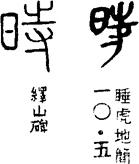 時
睡虎地簡
一〇·五
時
繹山碑